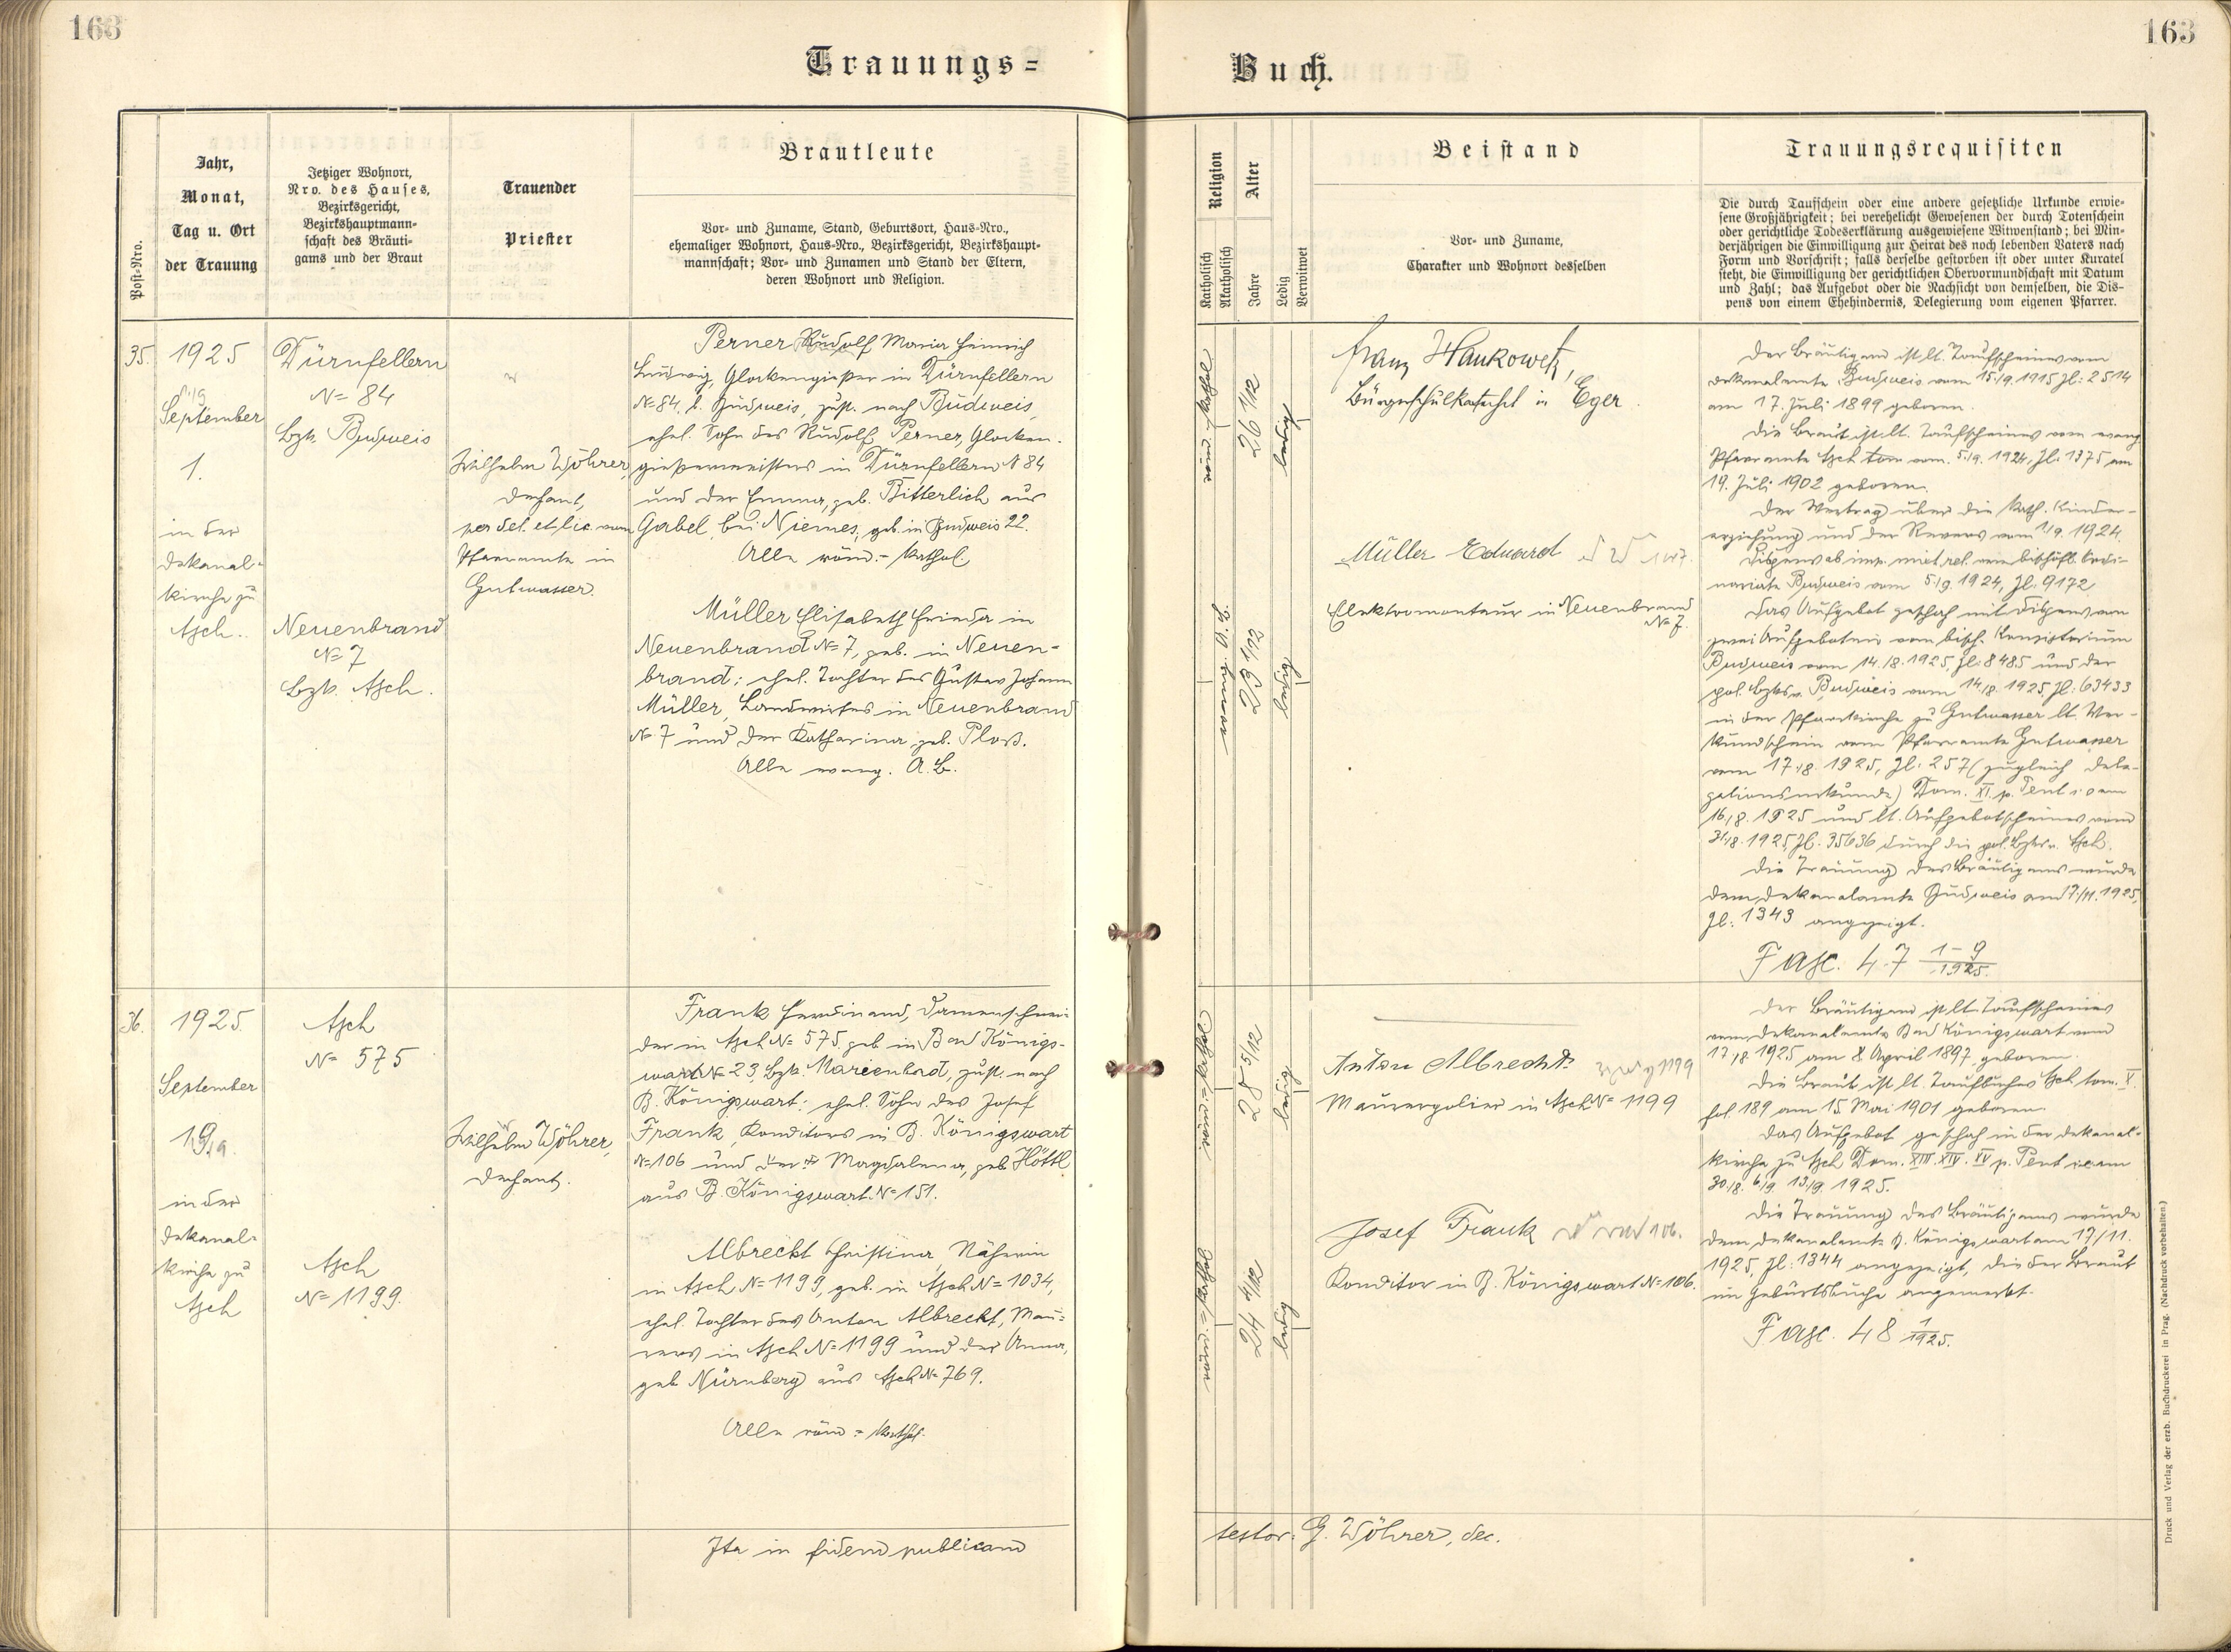 163
163
Trauungs=
Buch.
Post-Nro.
Jahr,
Monat,
Tag u. Ort
der Trauung
Jetziger Wohnort,
Nro. des Hauses,
Bezirksgericht,
Bezirkshauptmann-
schaft des Bräuti-
gams und der Braut
Trauender
Priester
Brautleute
Vor- und Zuname, Stand, Geburtsort, Haus-Nro.,
ehemaliger Wohnort, Haus-Nro., Bezirksgericht, Bezirkshaupt-
mannschaft; Vor- und Zunamen und Stand der Eltern,
deren Wohnort und Religion.
Religion
Katholisch
Akatholisch
Alter
Jahre
Ledig
Verwitwet
Beistand
Vor- und Zuname,
Charakter und Wohnort desselben
Trauungsrequisiten
Die durch Taufschein oder eine andere gesetzliche Urkunde erwie-
sene Großjährigkeit; bei verehelicht Gewesenen der durch Totenschein
oder gerichtliche Todeserklärung ausgewiesene Witwenstand; bei Min-
derjährigen die Einwilligung zur Heirat des noch lebenden Vaters nach
Form und Vorschrift; falls derselbe gestorben ist oder unter Kuratel
steht, die Einwilligung der gerichtlichen Obervormundschaft mit Datum
und Zahl; das Aufgebot oder die Nachsicht von demselben, die Dis-
pens von einem Ehehindernis, Delegierung vom eigenen Pfarrer.
35.
1925
September
1.
in der
Dekanal-
kirche zu
Asch.
Dürnfellern
N= 84
Bzk. Budweis
Neuenbrand
N= 7
Bzk. Asch.
Wilhelm Wöhrer,
Dechant,
per del. et lic. vom
Pfarramte in
Gutwasser.
Perner Rudolf Maria Heinrich
Ludwig, Glockengießer in Dürnfellern
N= 84, b. Budweis, zust. nach Budweis,
ehel. Sohn des Rudolf Perner, Glocken-
gießermeisters in Dürnfellern N 84
und der Emma, geb. Bitterlich aus
Gabel bei Niemes, geb. in Budweis 22.
Alle röm.= kathol.
Müller Elisabeth Frieda in
Neuenbrand N= 7, geb. in Neuen-
brand; ehel. Tochter des Gustav Johann
Müller, Landwirtes in Neuenbrand
N= 7 und der Katharina, geb. Ploß.
Alle evang. A. B.
röm.= kathol.
26 1/12
ledig
evang. A. B.
23 1/12
ledig
Franz Hankowetz,
Bürgerschulkatechet in Eger.
Müller Eduard
Elektromonteur in Neuenbrand
N= 7.
Der Bräutigam ist lt. Taufscheines vom
Dekanalamte Budweis vom 15./9. 1915 Zl: 2514
am 17. Juli 1899 geboren.
Die Braut ist lt. Taufscheines vom evang.
Pfarramte Asch vom 5./9. 1924, Zl: 1375 am
19. Juli 1902 geboren.
Der Vertrag über die kath. Kinder-
erziehung und der Revers vom 1/9. 1924.
Dispens ab imp. mixt. rel. vom bischöfl. Ordi-
nariate Budweis vom 5./9. 1924, Zl: 9172.
Das Aufgebot geschah mit Dispens von
zwei Aufgeboten vom bisch. Konsistorium
Budweis vom 14./8. 1925, Zl: 8485 und der
pol. Bzksv. Budweis vom 14./8. 1925, Zl: 63433
in der Pfarrkirche zu Gutwasser lt. Ver-
kündschein vom Pfarramte Gutwasser
vom 17./8. 1925, Zl: 257 (zugleich Dele-
gationsurkunde) Dom. XI. p. Pent. i. e. am
16./8. 1925 und lt. Aufgebotscheines vom
31./8. 1925, Zl: 35636 durch die pol. Bzksv. Asch.
Die Trauung des Bräutigams wurde
dem Dekanalamte Budweis am 17./11. 1925,
Zl: 1343 angezeigt.
Fasc. 47 1-9/1925.
36.
1925.
September
19./9.
in der
Dekanal-
kirche zu
Asch
Asch
N= 575
Asch
N= 1199.
Wilhelm Wöhrer,
Dechant.
Frank Ferdinand, Damenschnei-
der in Asch N= 575. geb. in Bad Königs-
wart N= 23, Bzk. Marienbad, zust. nach
B. Königswart; ehel. Sohn des Josef
Frank, Konditors in B. Königswart
N= 106 und der Magdalena, geb. Höttl
aus B. Königswart N= 151.
Albrecht Christina, Näherin
in Asch N= 1199, geb. in Asch N= 1034,
ehel. Tochter des Anton Albrecht, Mau=
rers in Asch N= 1199 und der Anna,
geb. Nürnberg aus Asch N= 769.
Alle röm.= kathol.
röm.= kathol.
28 5/12
ledig
röm.= kathol.
24 4/12
ledig
Anton Albrecht 1199
Maurerpolier in Asch N= 1199
Josef Frank 106.
Konditor in B. Königswart N= 106.
Der Bräutigam ist lt. Taufscheines
vom Dekanalamte Bad Königswart vom
17./8. 1925 am 8. April 1897 geboren.
Die Braut ist lt. Taufbuches Asch tom. X.
fol. 189 am 15. Mai 1901 geboren.
Das Aufgebot geschah in der Dekanal-
kirche zu Asch Dom. XIII. XIV. XV p. Pent. i. e. am
30./8. 6./9. 13./9. 1925.
Die Trauung des Bräutigams wurde
dem Dekanalamte B. Königswart am 17/11.
1925, Zl: 1344 angezeigt, die der Braut
im Geburtsbuche angemerkt.
Fasc. 48 1/1925.
Ita in fidem publicam
testor: G. Wöhrer, dec.
Druck und Verlag der erzb. Buchdruckerei in Prag. (Nachdruck vorbehalten.)